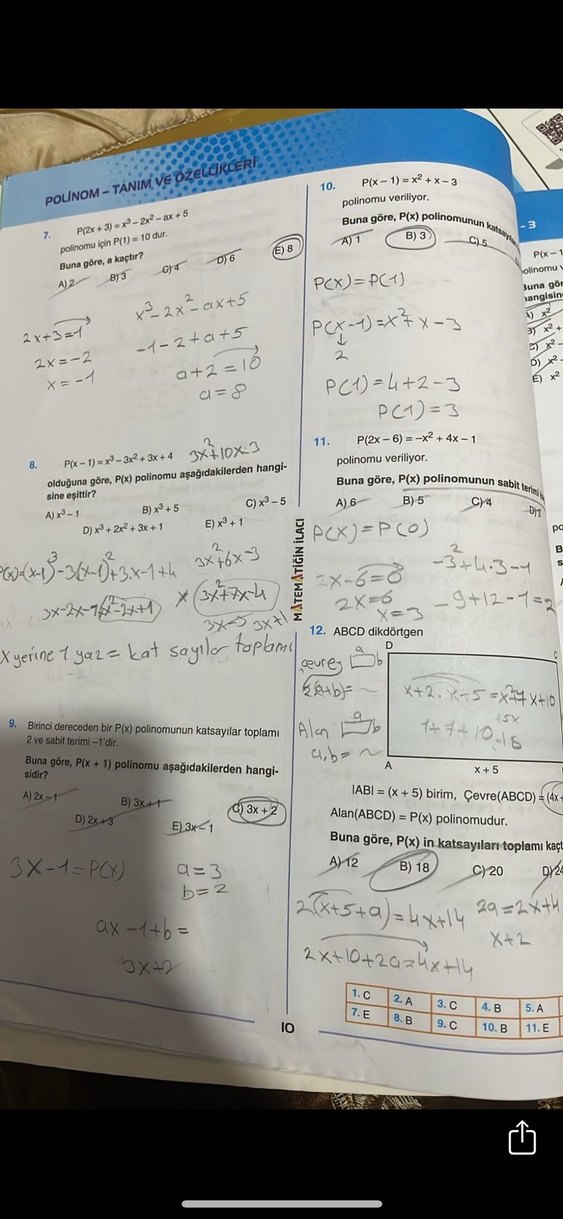 POLİNOM – TANIM VE ÖZELLİKLERİ
7. P(2x + 3) = x³ – 2x² – ax + 5
polinomu için P(1) = 10 dur.
Buna göre, a kaçtır?
A) 2 B) 3 C) 4 D) 6 E) 8
x³ – 2x² – ax + 5
2x + 3 = 1
– 1 – 2 + a + 5
2x = – 2
a + 2 = 10
x = – 1
a = 8
8. P(x – 1) = x³ – 3x² + 3x + 4
3x² + 10x - 3
olduğuna göre, P(x) polinomu aşağıdakilerden hangi-
sine eşittir?
A) x³ – 1 B) x³ + 5 C) x³ – 5
D) x³ + 2x² + 3x + 1 E) x³ + 1
3x² + 6x – 3
P(x) = (x-1)³ – 3(x-1)² + 3.x – 1 + 4
3x² + 7x – 4
x yerine 1 yaz = kat sayılar toplamı
9. Birinci dereceden bir P(x) polinomunun katsayılar toplamı
2 ve sabit terimi –1'dir.
Buna göre, P(x + 1) polinomu aşağıdakilerden hangi-
sidir?
A) 2x – 1 B) 3x + 1 C) 3x + 2
D) 2x + 3 E) 3x – 1
3x – 1 = P(x)
a = 3
b = 2
ax – 1 + b =
3x + 2
MATEMATİĞİN İLACI
10. P(x – 1) = x² + x – 3
polinomu veriliyor.
Buna göre, P(x) polinomunun
A) 1 B) 3 C) 5
P(x) = P(1)
P(x – 1) = x² + x – 3
2
P(1) = 4 + 2 – 3
P(1) = 3
11. P(2x – 6) = –x² + 4x – 1
polinomu veriliyor.
Buna göre, P(x) polinomunun sabit terimi
A) 6 B) 5 C) 4 D) 3
P(x) = P(0)
2x – 6 = 0
– 3² + 4.3 – 1
2x = 6
x = 3
– 9 + 12 – 1 = 2
12. ABCD dikdörtgen
D
C
çevre
a
b
2(a+b) =
x + 2 . x + 5 = x² + 7x + 10
+5x
1 + 7 + 10 = 18
Alan
a
b
a.b =
A
x + 5
|AB| = (x + 5) birim, Çevre(ABCD) = (4x +
Alan(ABCD) = P(x) polinomudur.
Buna göre, P(x) in katsayıları toplamı kaçt
A) 12 B) 18 C) 20 D) 24
2(x + 5 + a) = 4x + 14
2a = 2x + 4
x + 2
2x + 10 + 2a = 4x + 14
1. C 2. A 3. C 4. B 5. A
7. E 8. B 9. C 10. B 11. E
10
- 3
P(x – 1
Buna gör
hangisin
A) x²
B) x² +
C) x² –
D) x² –
E) x²